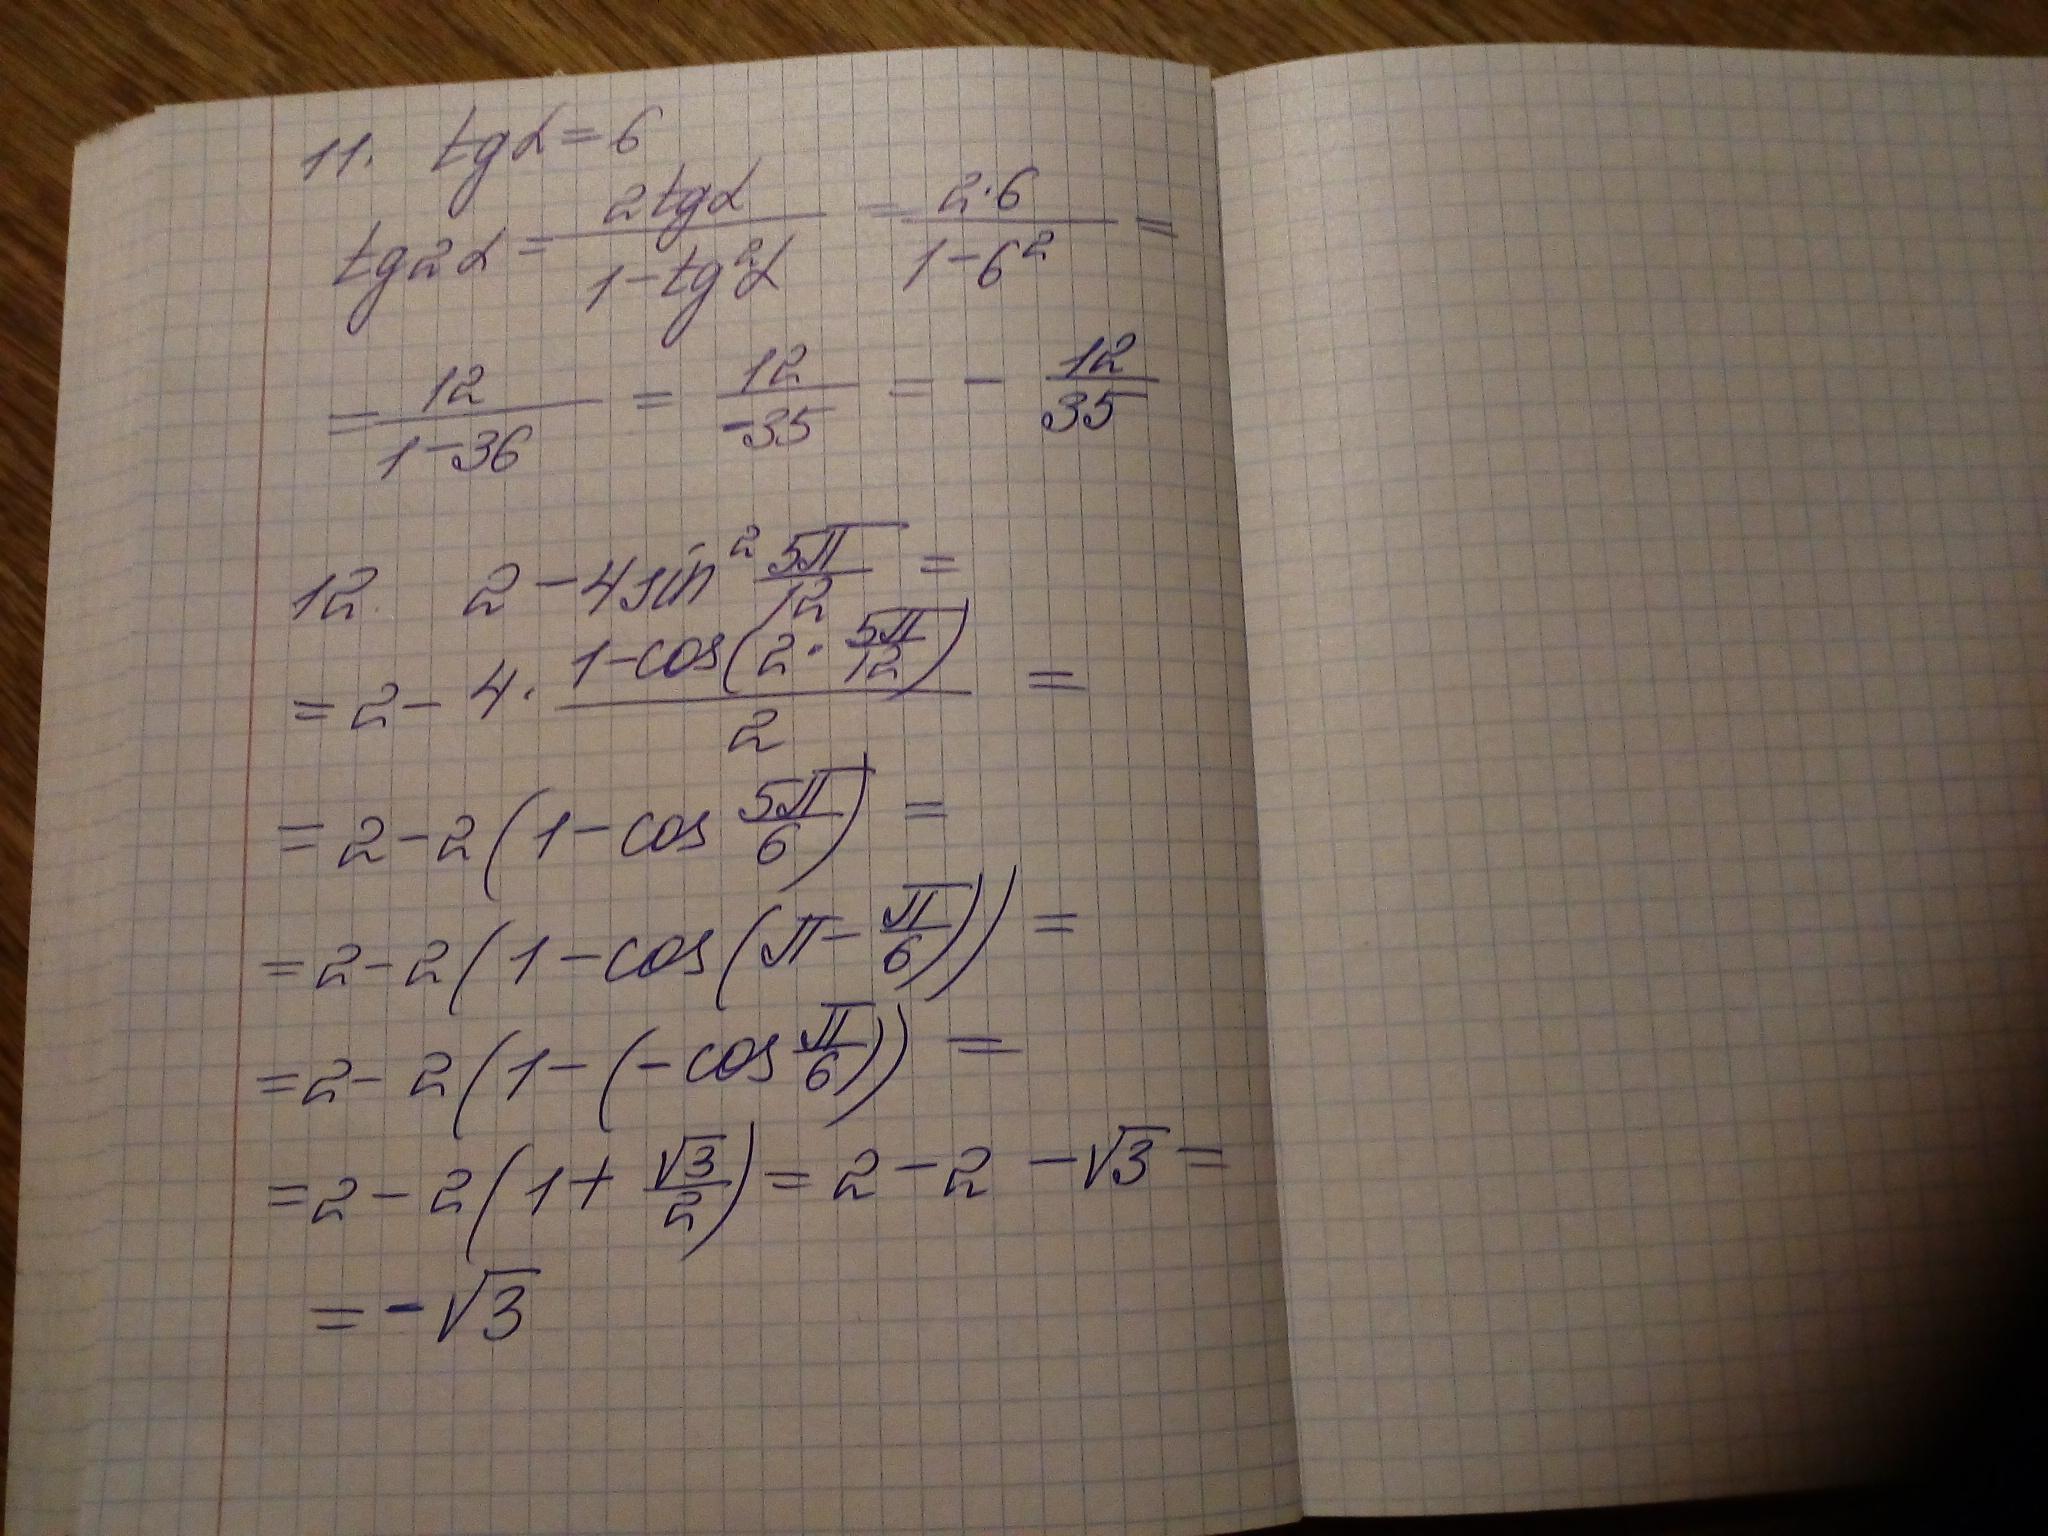 11. tgα = 6
tg2α = 2tgα / (1 - tg²α) = 2·6 / (1 - 6²) =
= 12 / (1 - 36) = 12 / -35 = - 12/35
12. 2 - 4sin² 5π/12 =
= 2 - 4 · (1 - cos(2 · 5π/12)) / 2 =
= 2 - 2(1 - cos 5π/6) =
= 2 - 2(1 - cos(π - π/6)) =
= 2 - 2(1 - (-cos π/6)) =
= 2 - 2(1 + √3/2) = 2 - 2 - √3 =
= -√3